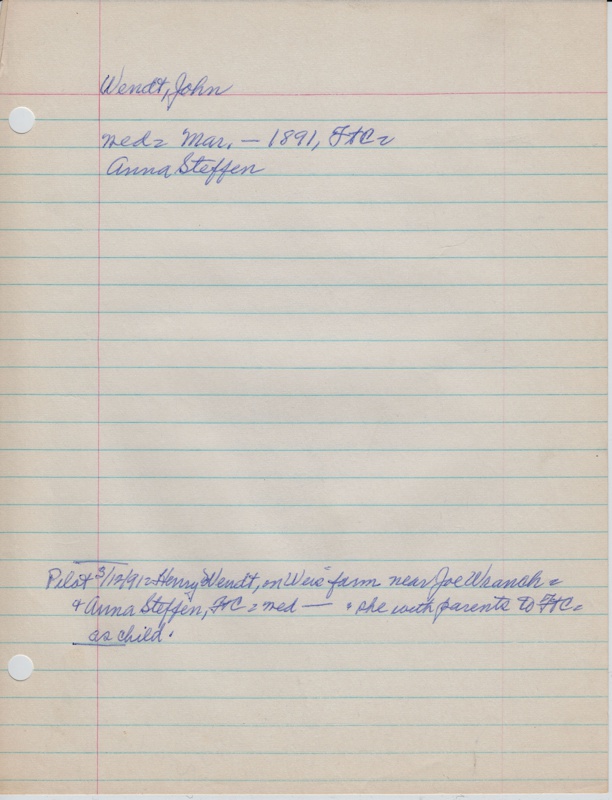 Wendt, John
wed = Mar. — 1891, FtC =
Anna Steffen
Pilot 3/12/91 = Henry Wendt, on Weis' farm near Joe Wranoh =
& Anna Steffen, FtC = wed — & she with parents to FtC =
as child.